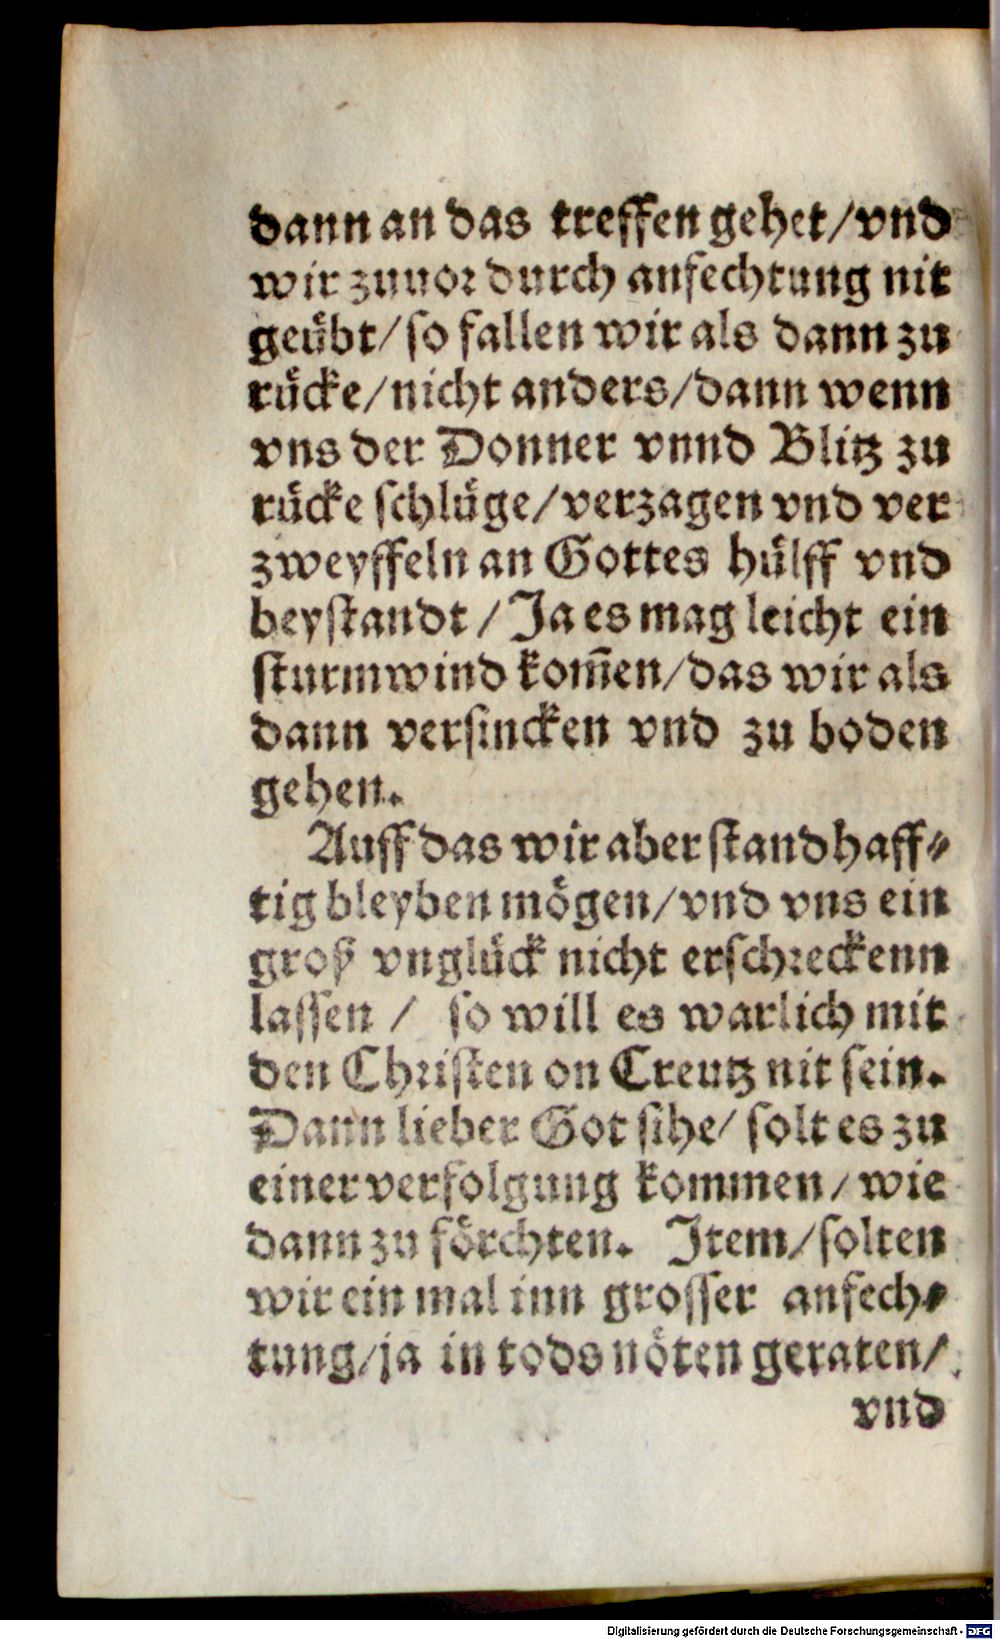 dann an das treffen gehet/vnd
wir zuuor durch anfechtung nit
geübt/so fallen wir als dann zu
rücke/nicht anders/dann wenn
vns der Donner vnnd Blitz zu
rücke schlüge/verzagen vnd ver
zweyffeln an Gottes hülff vnd
beystandt/Ja es mag leicht ein
sturmwind kom̃en/das wir als
dann versincken vnd zu boden
gehen.
Auff das wir aber standhaff⸗
tig bleyben mögen/vnd vns ein
groß vnglück nicht erschreckenn
lassen/ so will es warlich mit
den Christen on Creutz nit sein.
Dann lieber Got sihe/solt es zu
einer verfolgung kommen/wie
dann zu förchten. Item/solten
wir ein mal inn grosser anfech⸗
tung/ja in tods nöten geraten/
vnd
Digitalisierung gefördert durch die Deutsche Forschungsgemeinschaft - DFG